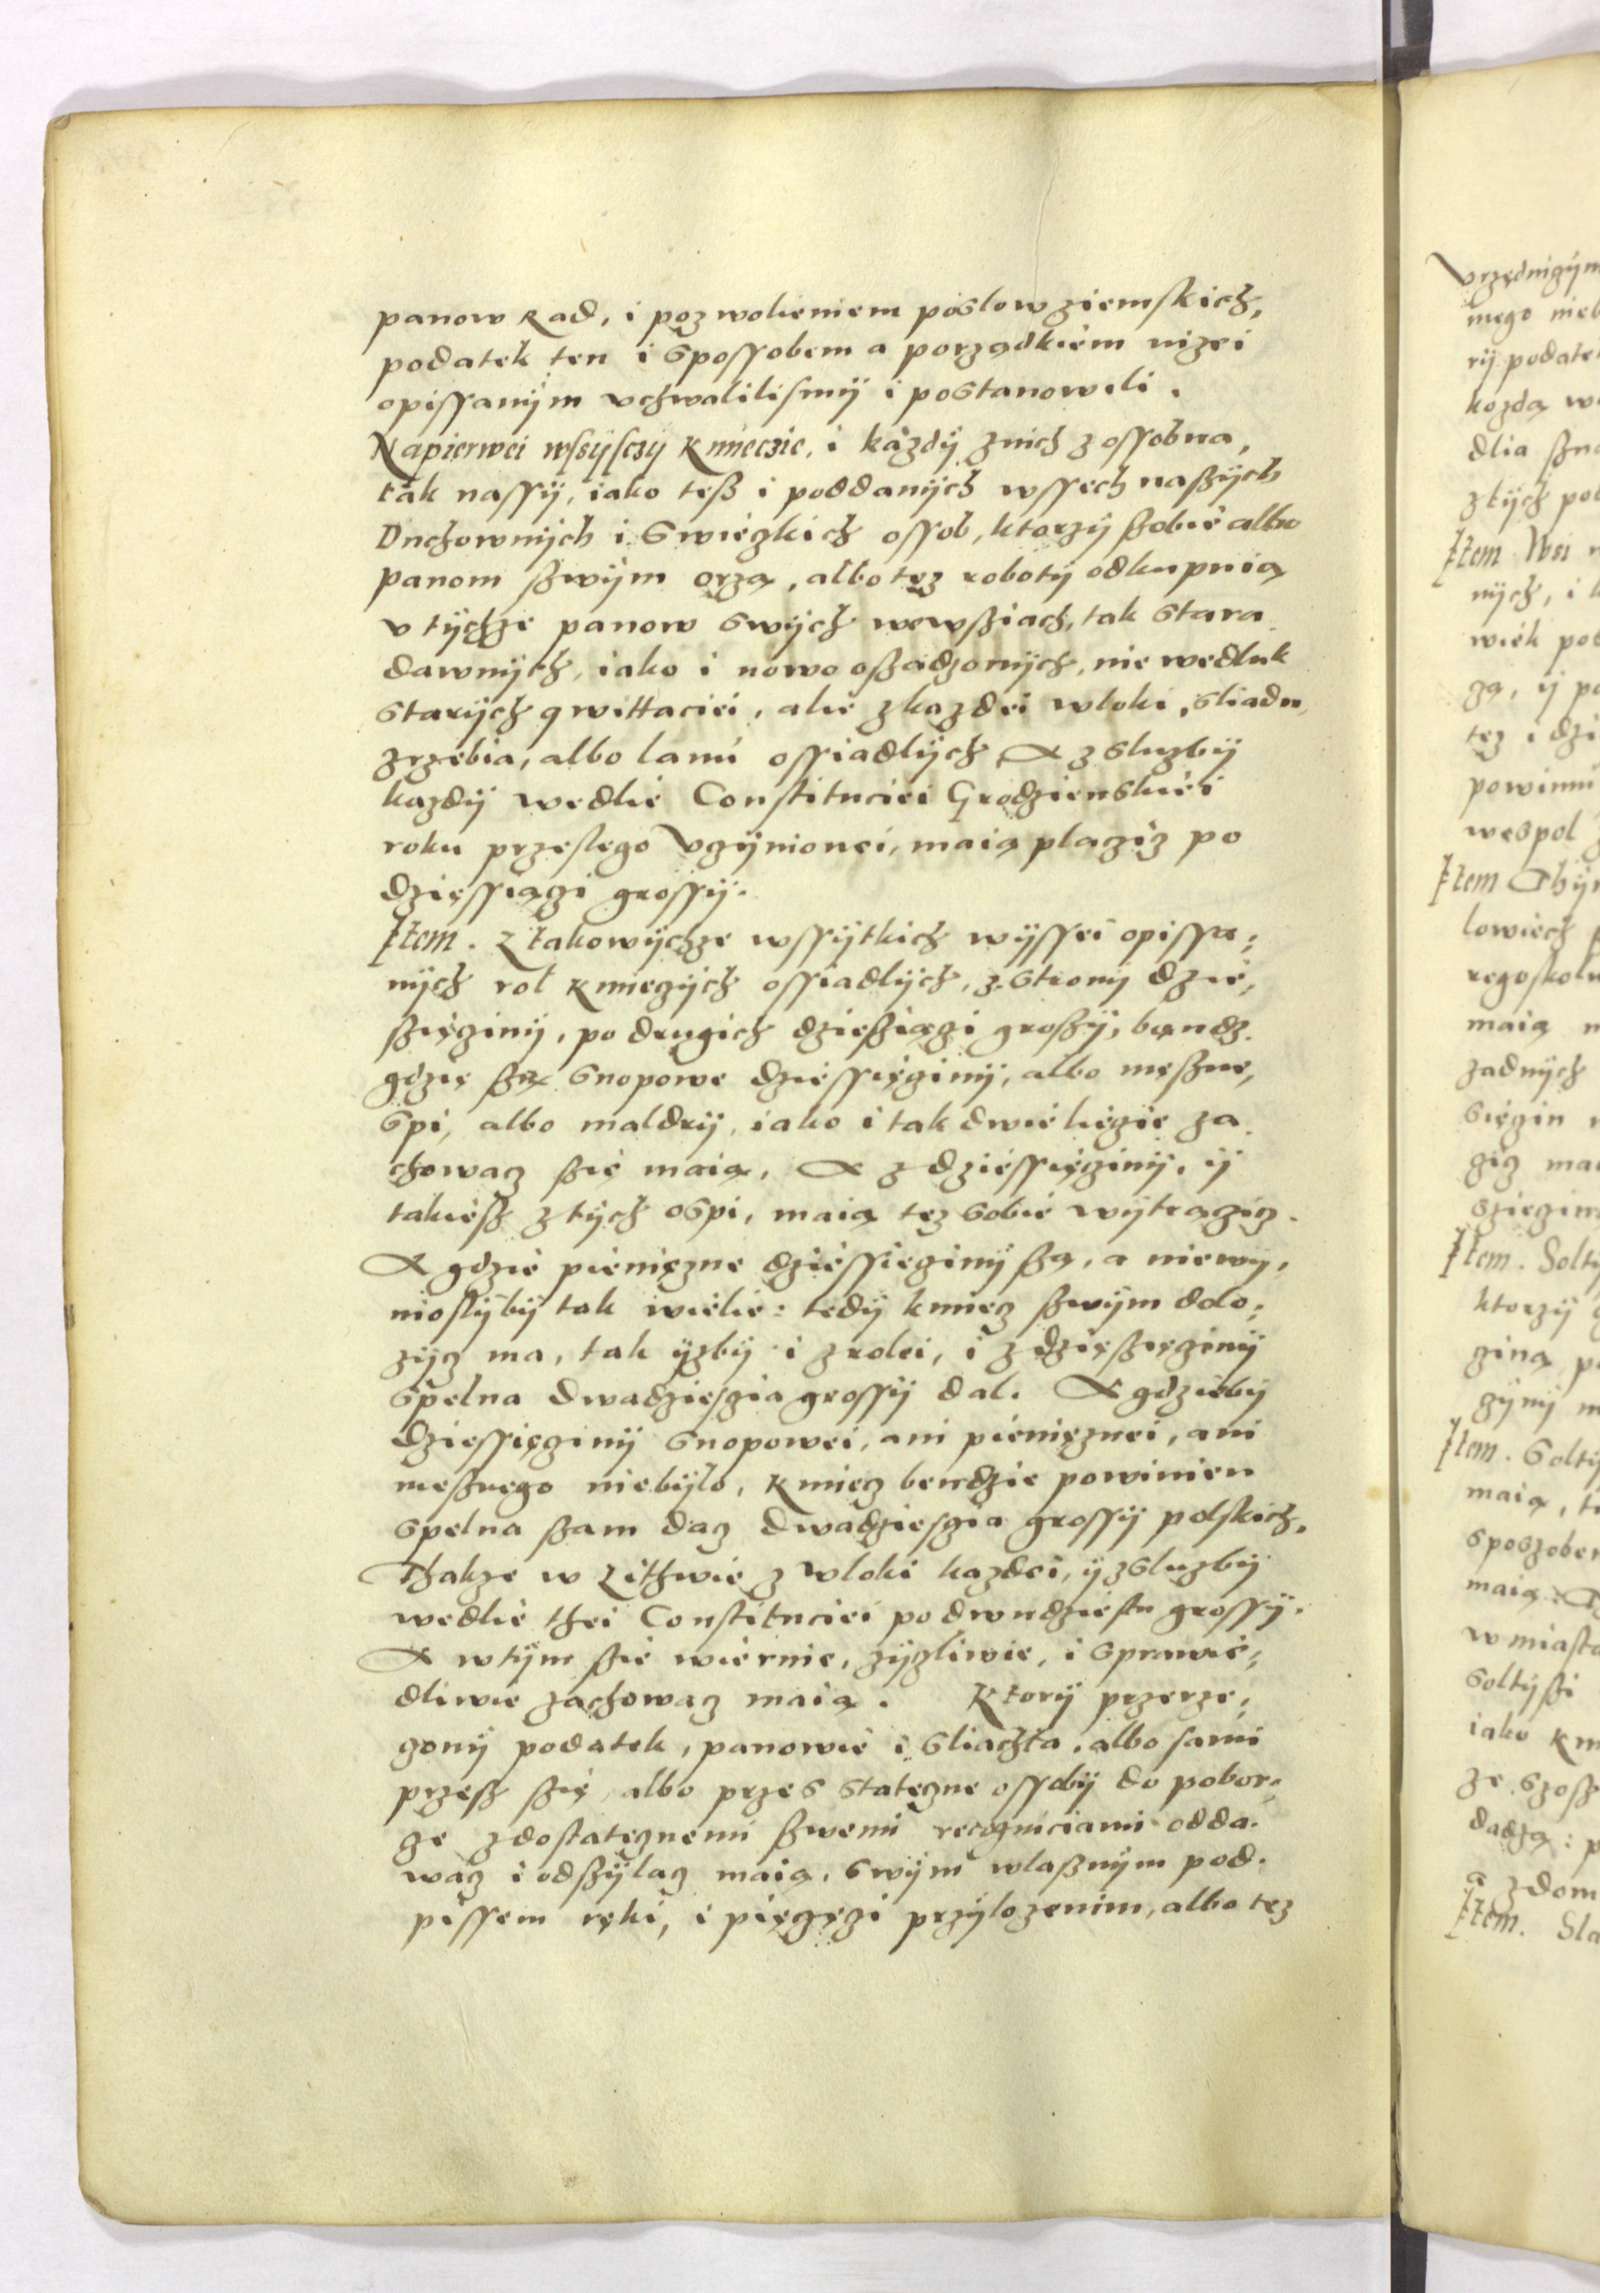 panow Rad, i pozwolieniem poslow ziemskich,
podatek ten i spossobem a porządkiem nizei
opissanÿm uchwalilismÿ i postanowili.
Napierwei wssÿsczÿ Kmieczie, i kazdÿ znich z ossobna,
tak nassÿ, iako teß i poddanÿch wssech naßÿch
Duchownÿch i Swiezkich ossob, ktorzÿ ßobie albo
panom ßwÿm orzą, albo tez robotÿ odkupuią
v tÿchze panow swÿch wewßiach, tak stara
dawnÿch, iako i nowo oßadzonÿch, nie wedluk
starÿch qwittaciei, alie z kazdei wloki, sliadu,
zrzebia, albo lanu ossiadlÿch A z sluzbÿ
kazdÿ wedlie Constituciei Grodzienskiei
roku przeslego Vczÿnionei, maią placziz po
dziessiączi grossÿ.
Item. Z takowÿchze wssÿtkich wÿssei opissa,
nÿch rol Kmiezÿch ossiadlÿch, z stronÿ dzie,
ßięzinÿ, po drugich dzießięzi großÿ, bąndz
gdzię ßą Snopowe dziessięzinÿ, albo meßne,
Spi, albo maldrÿ, iako i tak dwieliezie za
chowaz ßię maią, A z dziessięzinÿ, ÿ
takieß z tÿch ospi, maią tez sobie wÿtrązicz.
A gdzie pienięzne dziessiezinÿ ßą, a niewÿ,
nioslÿbÿ tak wielie: tedÿ kmiez ßwÿm dolo,
zÿz ma, tak ÿzbÿ i z rolei, i z dzięßięzinÿ
spelna dwadziesczia grossÿ dal. A gdziebÿ
dziessięzinÿ snopowei, ani pienięznei, ani
meßnego niebÿlo, Kmiez bendzie powinien
spelna ßam daz dwadziesczia grossÿ polskich,
Thakze w Lithwie z wloki kazdei, ÿ z sluzbÿ
wedlie thei Constituciei po dwudziestu grossÿ.
A w tÿm ßie wiernie, zÿzliwie, i sprawie,
dliwie zachowaz maią. Ktorÿ przerze,
zonÿ podatek, panowie i Sliachta, albo sami
przeß ßię, albo przes stateczne ossobÿ do pobor,
ze z dostatecznemi ßwemi recogniciami odda.
waz i odßÿlaz maią, swÿm wlaßnÿm pod.
pissem ręki, i pięczęzi przÿlozenim, albo tez